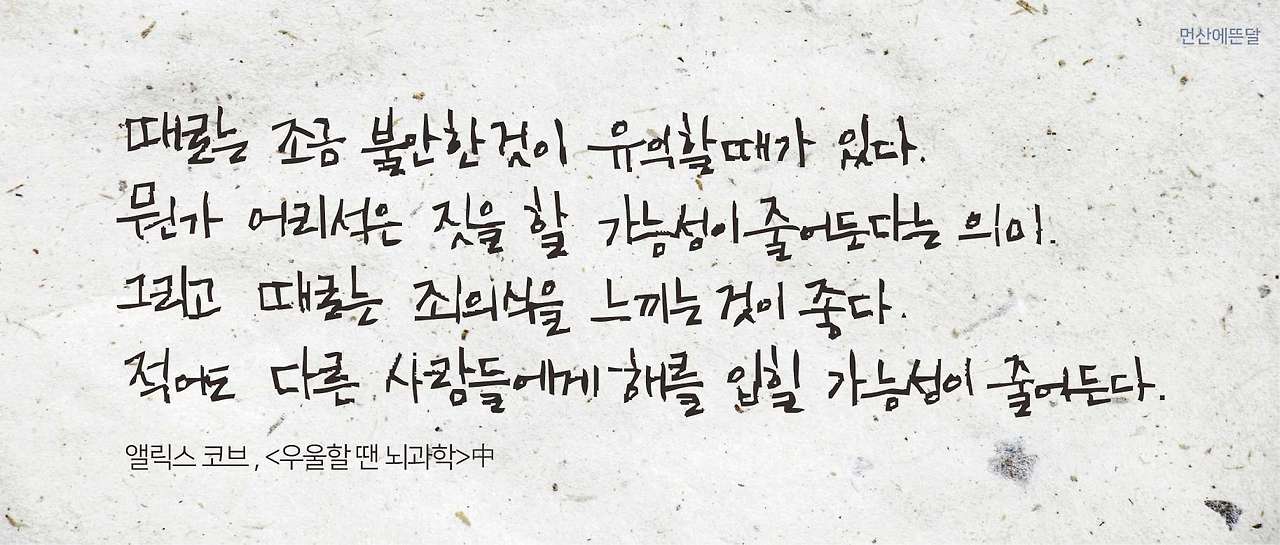 먼산에뜬달
때로는 조금 불안한 것이 유익할 때가 있다.
뭔가 어리석은 짓을 할 가능성이 줄어든다는 의미.
그리고 때로는 죄의식을 느끼는 것이 좋다.
적어도 다른 사람들에게 해를 입힐 가능성이 줄어든다.
앨릭스 코브, <우울할 땐 뇌과학>中